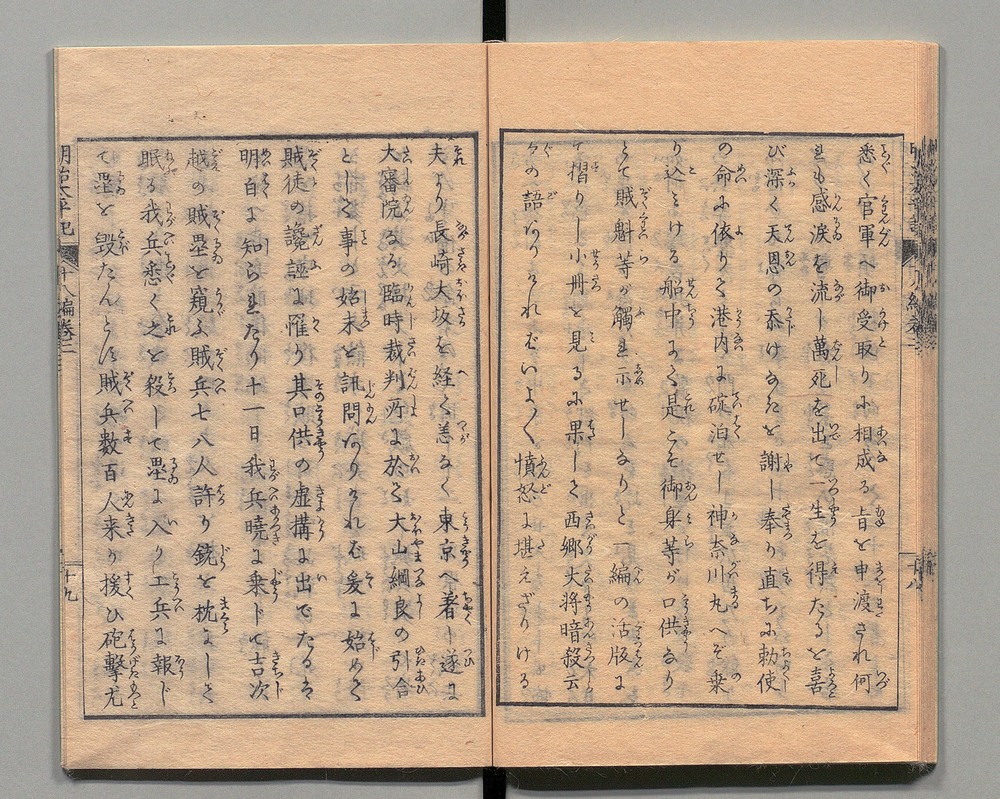 悉く官軍へ御受取りに相成る旨を申渡され何
れも感涙を流し萬死を出て一生を得たるを喜
び深く天恩の忝けなきを謝し奉り直ちに勅使
の命に依りて港内に碇泊せし神奈川丸へぞ乗
り込みける船中にて是こそ御身等が口供なり
とて賊魁等が觸れ示せしなりと一編の活版に
て摺りし小冊を見るに果して西郷大将暗殺云
々の語ありければいよ〱憤怒に堪えざりける
夫より長崎大坂を経て恙なく東京へ着し遂に
大審院なる臨時裁判所に於て大山綱良の引合
として事の始末を訊問ありければ爰に始めて
賊徒の讒誣に罹り其口供の虚構に出でたるを
明白に知られたり十一日我兵暁に乗じて吉次
越の賊塁を窺ふ賊兵七八人許り銃を枕にして
眠る我兵悉く之を殺して塁に入り工兵に報じ
て塁を毀たんとす賊兵数百人来り援ひ砲撃尤
明治太平記
十八編巻二
十九
十八